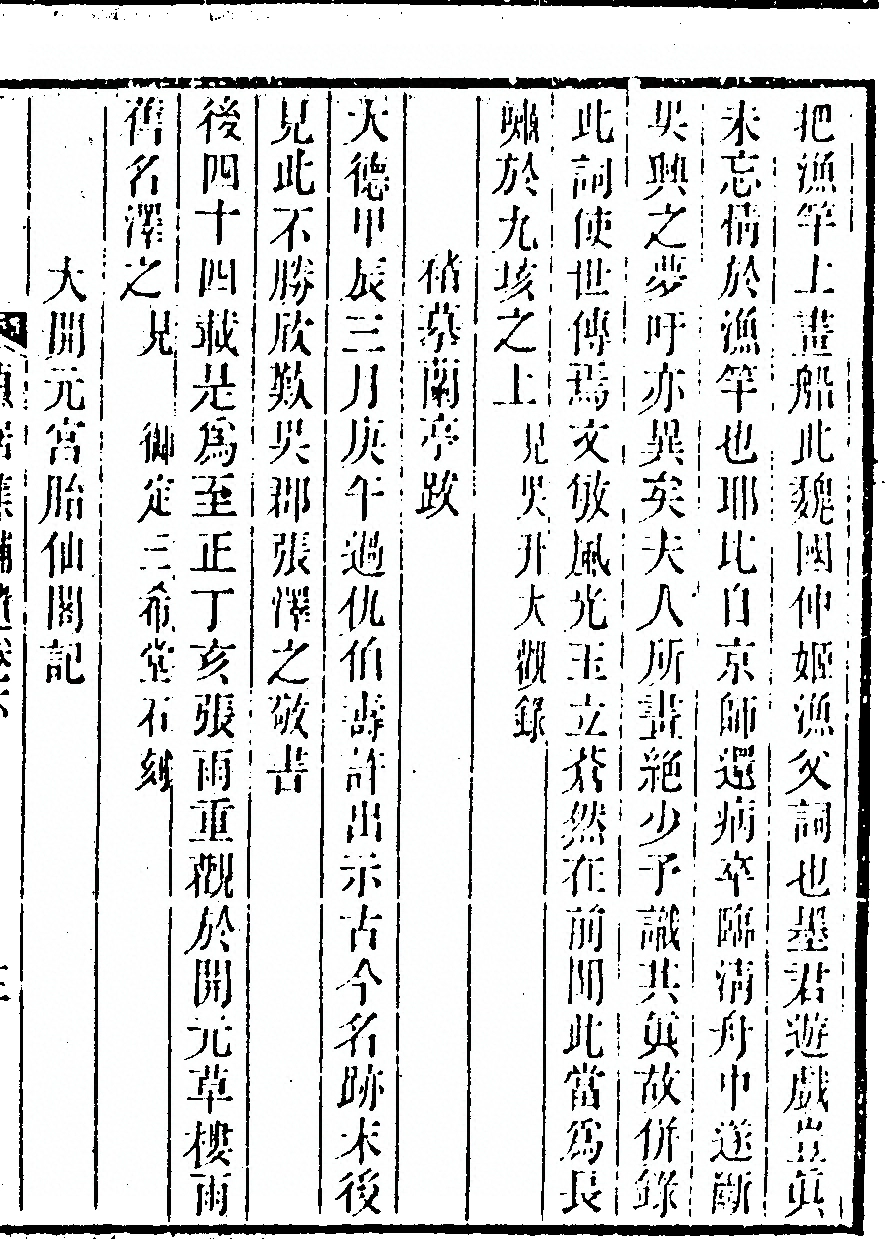 把漁竿上畫船此魏國仲姬漁父詞也墨君遊戲豈眞
未忘情於漁竿也耶比自京師還病卒臨淸舟中遂斷
吳興之夢吁亦異矣夫人所畫絕少予識其眞故併錄
此詞使世傳焉文敏風光玉立蒼然在前聞此當爲長
嘯於九垓之上見吳升大觀錄
褚摹蘭亭跋
大德甲辰三月庚午過仇伯壽許出示古今名跡末後
見此不勝欣歎吳郡張澤之敬書
後四十四載是爲至正丁亥張雨重觀於開元草樓雨
舊名澤之見 御定三希堂石刻
大開元宮胎仙閣記
貞居集補遺卷下
三